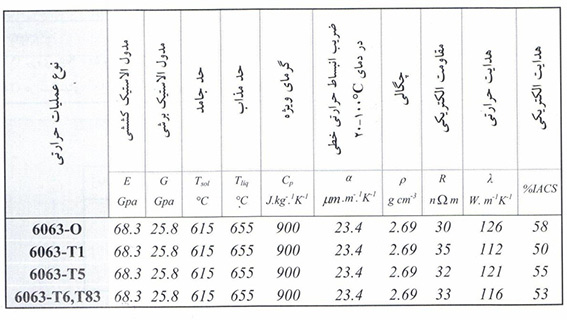 نوع عملیات حرارتی
مدول الاستیک کششی
مدول الاستیک برشی
حد جامد
حد مذاب
گرمای ویژه
ضریب انبساط حرارتی خطی
در دمای ۲۰-۱۰۰°C
چگالی
مقاومت الکتریکی
هدایت حرارتی
هدایت الکتریکی
E G Tsol Tliq Cp α ρ R λ %IACS
Gpa Gpa °C °C J.kg-1.K-1 μm.m-1.K-1 g cm-3 nΩ m W. m-1K-1
6063-O 68.3 25.8 615 655 900 23.4 2.69 30 126 58
6063-T1 68.3 25.8 615 655 900 23.4 2.69 35 112 50
6063-T5 68.3 25.8 615 655 900 23.4 2.69 32 121 55
6063-T6,T83 68.3 25.8 615 655 900 23.4 2.69 33 116 53